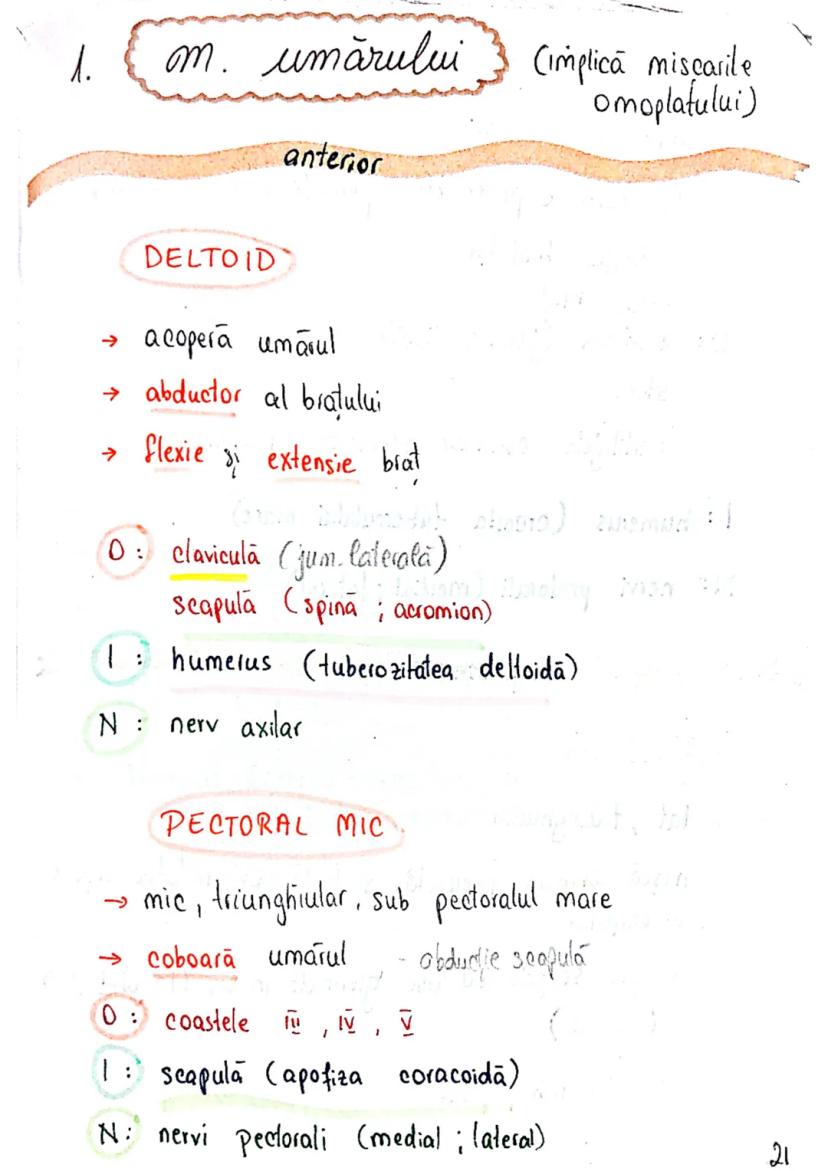 1. m. umărului (implică miscarile
omoplatului)
anterior
DELTOID
→ acoperă umărul
→ abductor al brațului
→ flexie și extensie braț
O: claviculă (jum. laterală)
scapulă (spină ; acromion)
I: humerus (tuberozitatea deltoidă)
N: nerv axilar
PECTORAL MIC
→ mic, triunghiular, sub pectoralul mare
→ coboară umărul - abducție scapulă
O: coastele III, IV, V
I: scapulă (apofiza coracoidă)
N: nervi pectorali (medial ; lateral)
21